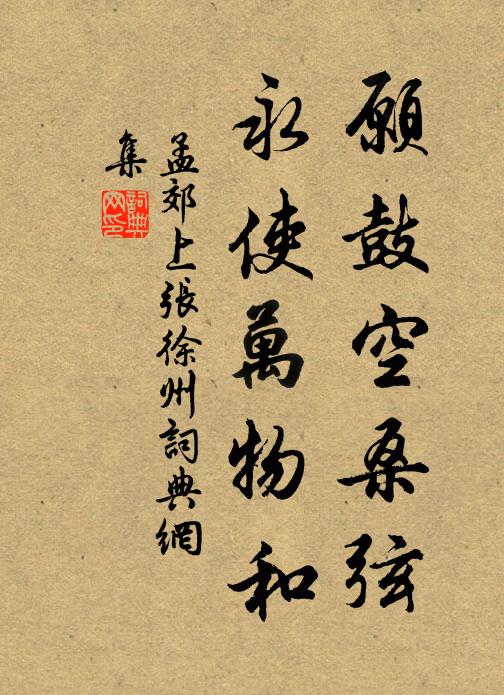 願鼓空桑弦
永使萬物和
孟郊上張徐州詞典網
集
詞典
网印